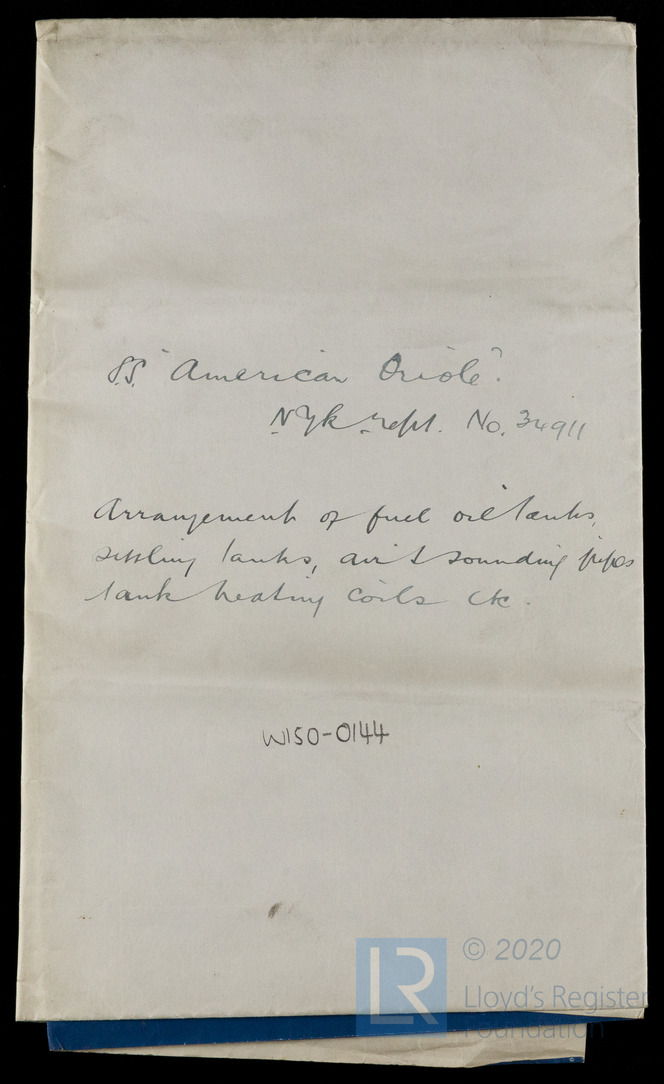 S.S. "American Oriole".
N. Yk rept. No. 34911
Arrangement of fuel oil tanks,
settling tanks, air & sounding pipes
tank heating coils etc.
W150-0144
LR
© 2020
Lloyd's Register
Foundation